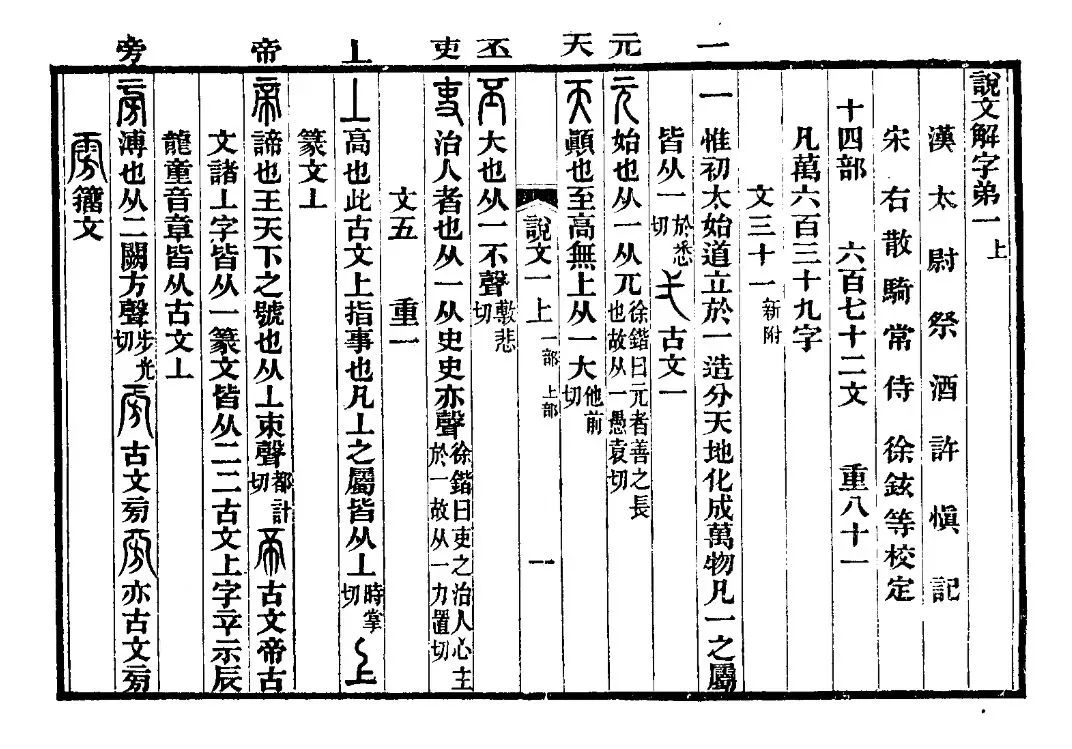 一 元 天 丕 吏 丄 帝 旁
說文解字弟一上
漢太尉祭酒許愼記
宋右散騎常侍徐鉉等校定
十四部 六百七十二文 重八十一
凡萬六百三十九字
文三十一新附
一惟初太始道立於一造分天地化成萬物凡一之屬
皆从一於悉切弌古文一
元始也从一从兀徐鍇曰元者善之長也故从一愚袁切
天顚也至高無上从一大他前切
說文一上 一部 上部 一
丕大也从一不聲敷悲切
吏治人者也从一从史史亦聲徐鍇曰吏之治人心主於一故从一力置切
文五 重一
丄高也此古文上指事也凡丄之屬皆从丄時掌切上
篆文丄
帝諦也王天下之號也从丄朿聲都計切帝古文帝古
文諸丄字皆从一篆文皆从二二古文上字䇂示辰
龍童音章皆从古文丄
旁溥也从二闕方聲步光切旁古文㫄旁亦古文㫄
雱籒文